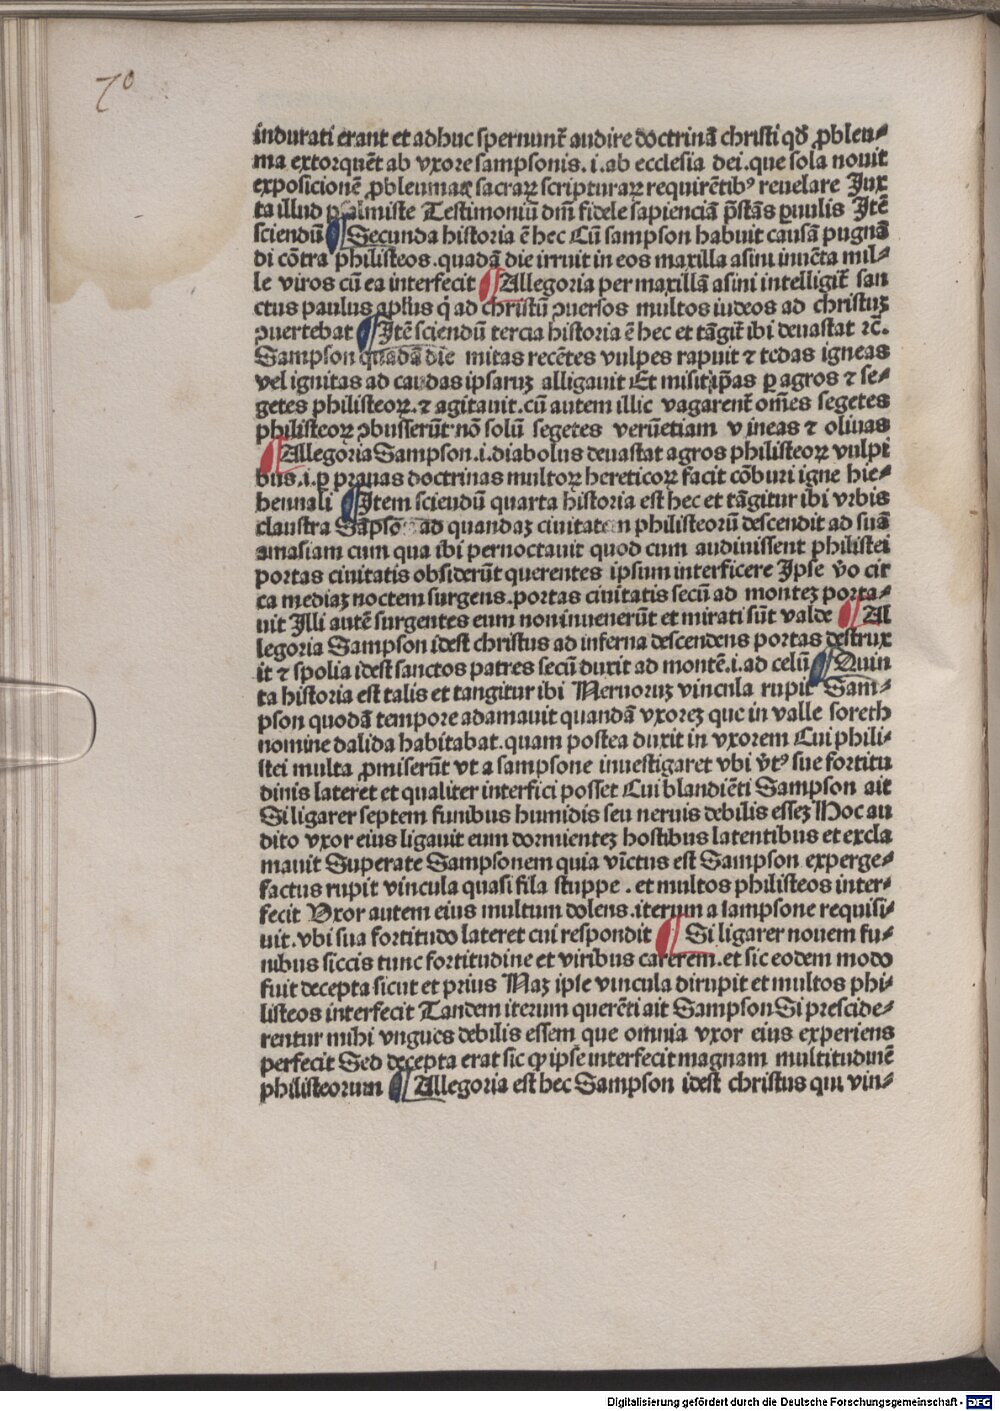 70
indurati erant et adhuc spernunt᷑ audire doctrinā christi qđ ꝓbleu⸗
ma extorquēt ab vxore sampsonis.i.ab ecclesia dei.que sola nouit
exposicionē ꝓbleumaꝝ sacraꝝ scripturaꝝ requirētibꝰ reuelare Jux
ta illud psalmiste Testimoniū dn̄i fidele sapienciā p̄stās ꝑuulis Jtē
sciendū ¶ Secunda historia ē hec Cū sampson habuit causā pugnā
di cōtra philisteos.quadā die irruit in eos maxilla asini inuēta mil⸗
le viros cū ea interfecit ¶ Allegoria per maxillā asini intelligit᷑ san
ctus paulus apl̓us q̇ ad christū ꝯuersos multos iudeos ad christuꝫ
ꝯuertebat ¶ Jtē sciendū tercia historia ē hec et tāgit᷑ ibi deuastat ⁊c̄.
Sampson quadā die mitas recētes vulpes rapuit ⁊ tedas igneas
vel ignitas ad caudas ipsaruꝫ alligauit Et misit ip̄as ꝑ agros ⁊ se⸗
getes philisteoꝝ.⁊ agitauit.cū autem illic vagarent᷑ om̄es segetes
philisteoꝝ ꝯbusserūt nō solū segetes verūetiam vineas ⁊ oliuas
¶ Allegoria Sampson.i.diabolus deuastat agros philisteoꝝ vulpi
bus.i.ꝑ prauas doctrinas multoꝝ hereticoꝝ facit cōburi igne hie⸗
hennali ¶ Jtem sciendū quarta historia est hec et tāgitur ibi vrbis
claustra Sāpson ad quandaꝫ ciuitatem philisteorū descendit ad suā
amasiam cum qua ibi pernoctauit quod cum audiuissent philistei
portas ciuitatis obsiderūt querentes ipsum interficere Jpse v̄o cir
ca mediaꝫ noctem surgens.portas ciuitatis secū ad monteꝫ porta⸗
uit Jlli autē surgentes eum non inuenerūt et mirati sūt valde ¶ Al
legoria Sampson idest christus ad inferna descendens portas destrux
it ⁊ spolia idest sanctos patres secū duxit ad montē.i.ad celū ¶ Quin
ta historia est talis et tangitur ibi Neruoruꝫ vincula rupit Sam⸗
pson quodā tempore adamauit quandā vxoreꝫ que in valle soreth
nomine dalida habitabat.quam postea duxit in vxorem Cui phili⸗
stei multa ꝓmiserūt vt a sampsone inuestigaret vbi v̄tꝰ sue fortitu
dinis lateret et qualiter interfici posset Cui blandiēti Sampson ait
Si ligarer septem funibus humidis seu neruis debilis esseꝫ Hoc au
dito vxor eius ligauit eum dormienteꝫ hostibus latentibus et excla
mauit Superate Sampsonem quia vīctus est Sampson experge⸗
factus rupit vincula quasi fila stuppe . et multos philisteos inter⸗
fecit Vxor autem eius multum dolens.iterum a sampsone requisi⸗
uit.vbi sua fortitudo lateret cui respondit ¶ Si ligarer nouem fu⸗
nibus siccis tunc fortitudine et viribus carerem.et sic eodem modo
fuit decepta sicut et prius Naꝫ ipse vincula dirupit et multos phi⸗
listeos interfecit Tandem iterum querēti ait Sampson Si prescide⸗
rentur mihi vngues debilis essem que omnia vxor eius experiens
perfecit Sed decepta erat sic ꝙ ipse interfecit magnam multitudinē
philisteorum ¶ Allegoria est hec Sampson idest christus qui vin⸗
Digitalisierung gefördert durch die Deutsche Forschungsgemeinschaft - DFG